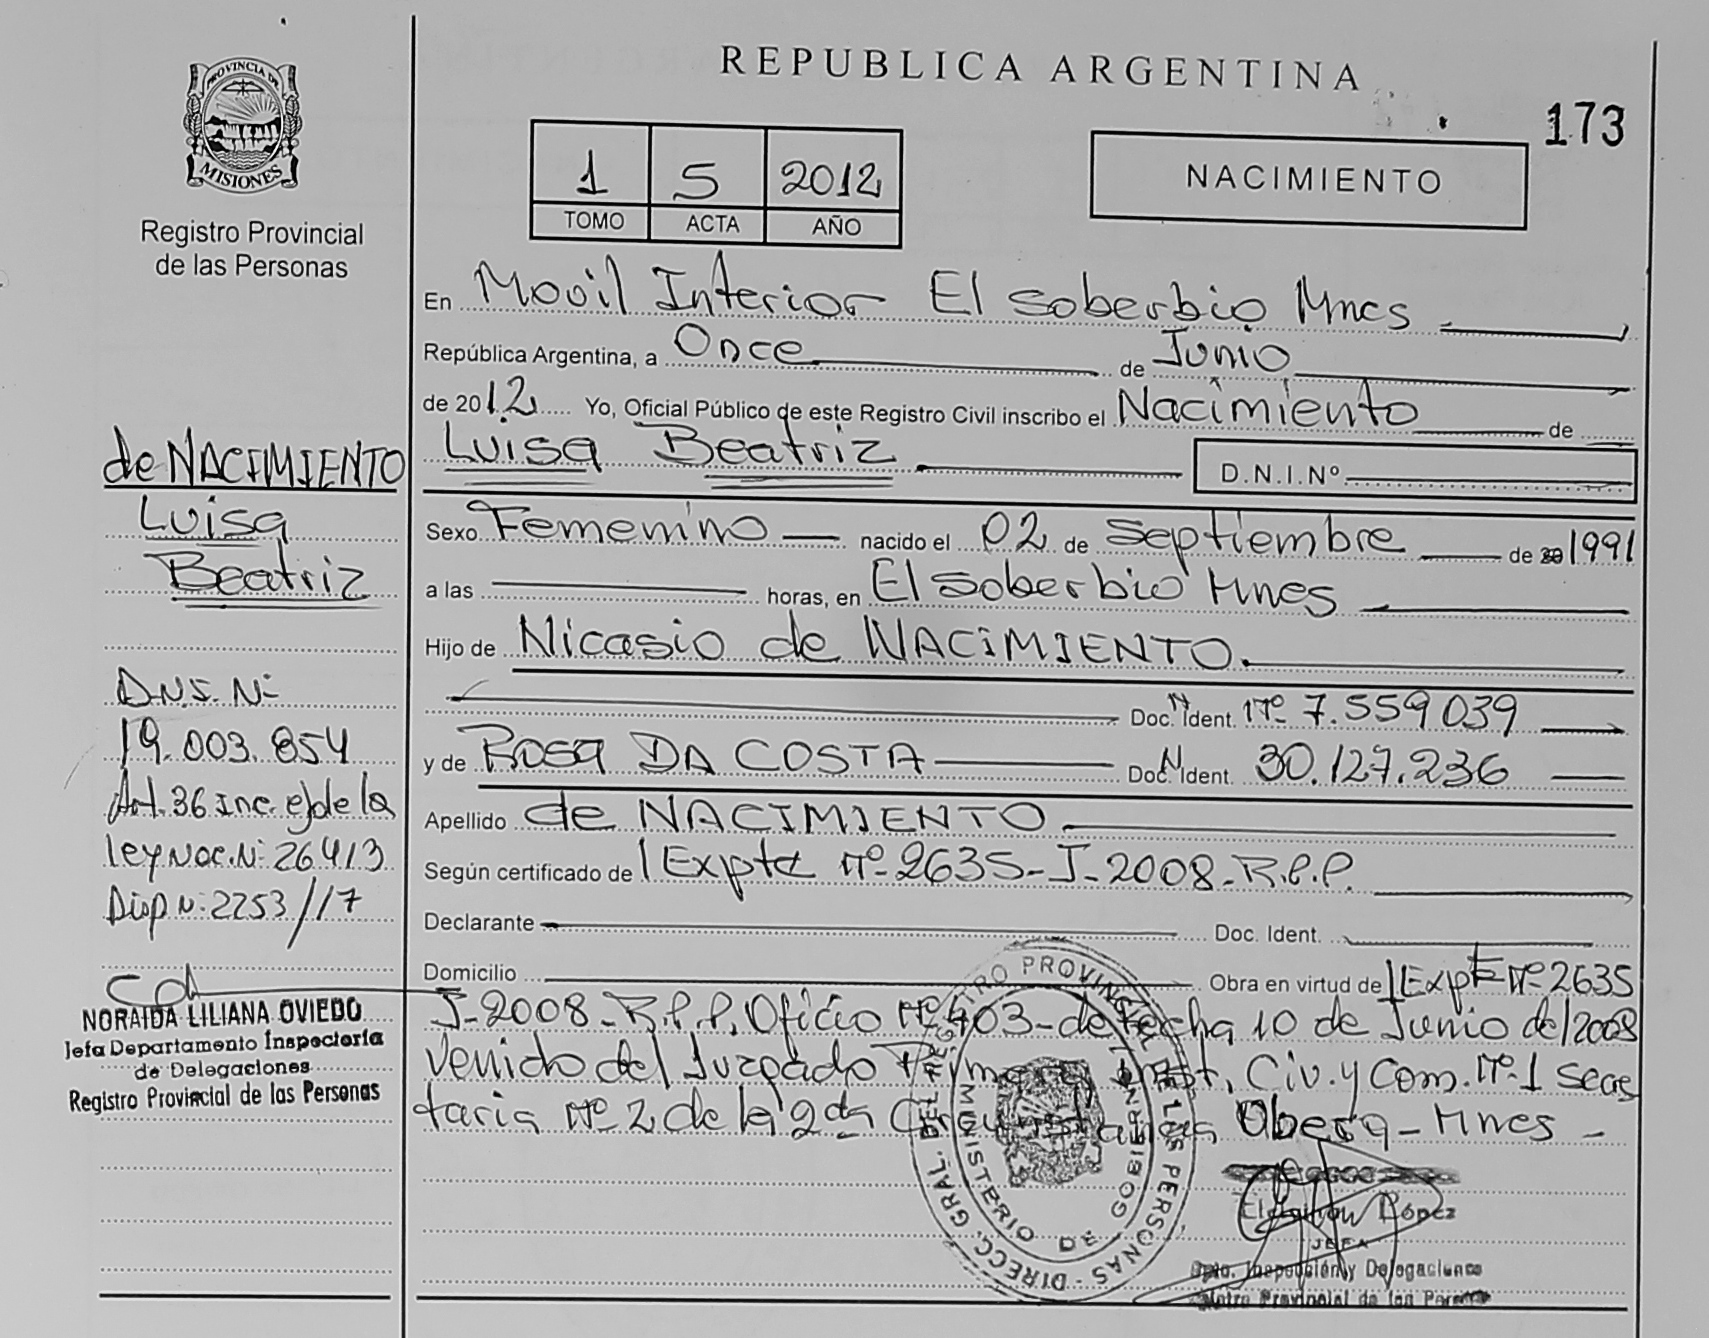 REPUBLICA ARGENTINA
173
PROVINCIA DE
MISIONES
Registro Provincial
de las Personas
1 5 2012
TOMO ACTA AÑO
NACIMIENTO
En Movil Interior El Soberbio Mnes
República Argentina, a Once de Junio
de 2012 Yo, Oficial Público de este Registro Civil inscribo el Nacimiento de
Luisa Beatriz D.N.I.Nº
Sexo Femenino nacido el 02 de Septiembre de 1991
a las horas, en El Soberbio Mnes
Hijo de Nicasio de NACIMIENTO
Doc. Ident. Nº 7.559.039
y de Rosa DA COSTA Doc. Ident. 30.127.236
Apellido de NACIMIENTO
Según certificado de Expte Nº 2635-J-2008-R.P.P.
Declarante Doc. Ident.
Domicilio Obra en virtud de Expte Nº 2635
J-2008-R.P.P. Oficio Nº 403-de fecha 10 de Junio de 2008
Venido del Juzgado Primera Inst. Civ. y Com. Nº 1 Secre
taria Nº 2 de la 2da Obera - Mnes -
de NACIMIENTO
Luisa
Beatriz
D.N.I. Nº
19.003.854
Art. 36 Inc. e) de la
Ley Nac. Nº 26413
Disp Nº 2253/17
NORAIDA LILIANA OVIEDO
Jefa Departamento Inspectoria
de Delegaciones
Registro Provincial de las Personas
DIRECC. GRAL. DEL REGISTRO PROVINCIAL DE LAS PERSONAS
MINISTERIO DE GOBIERNO
López
JEFA
Dpto. Inspección y Delegaciones
Provincial de las